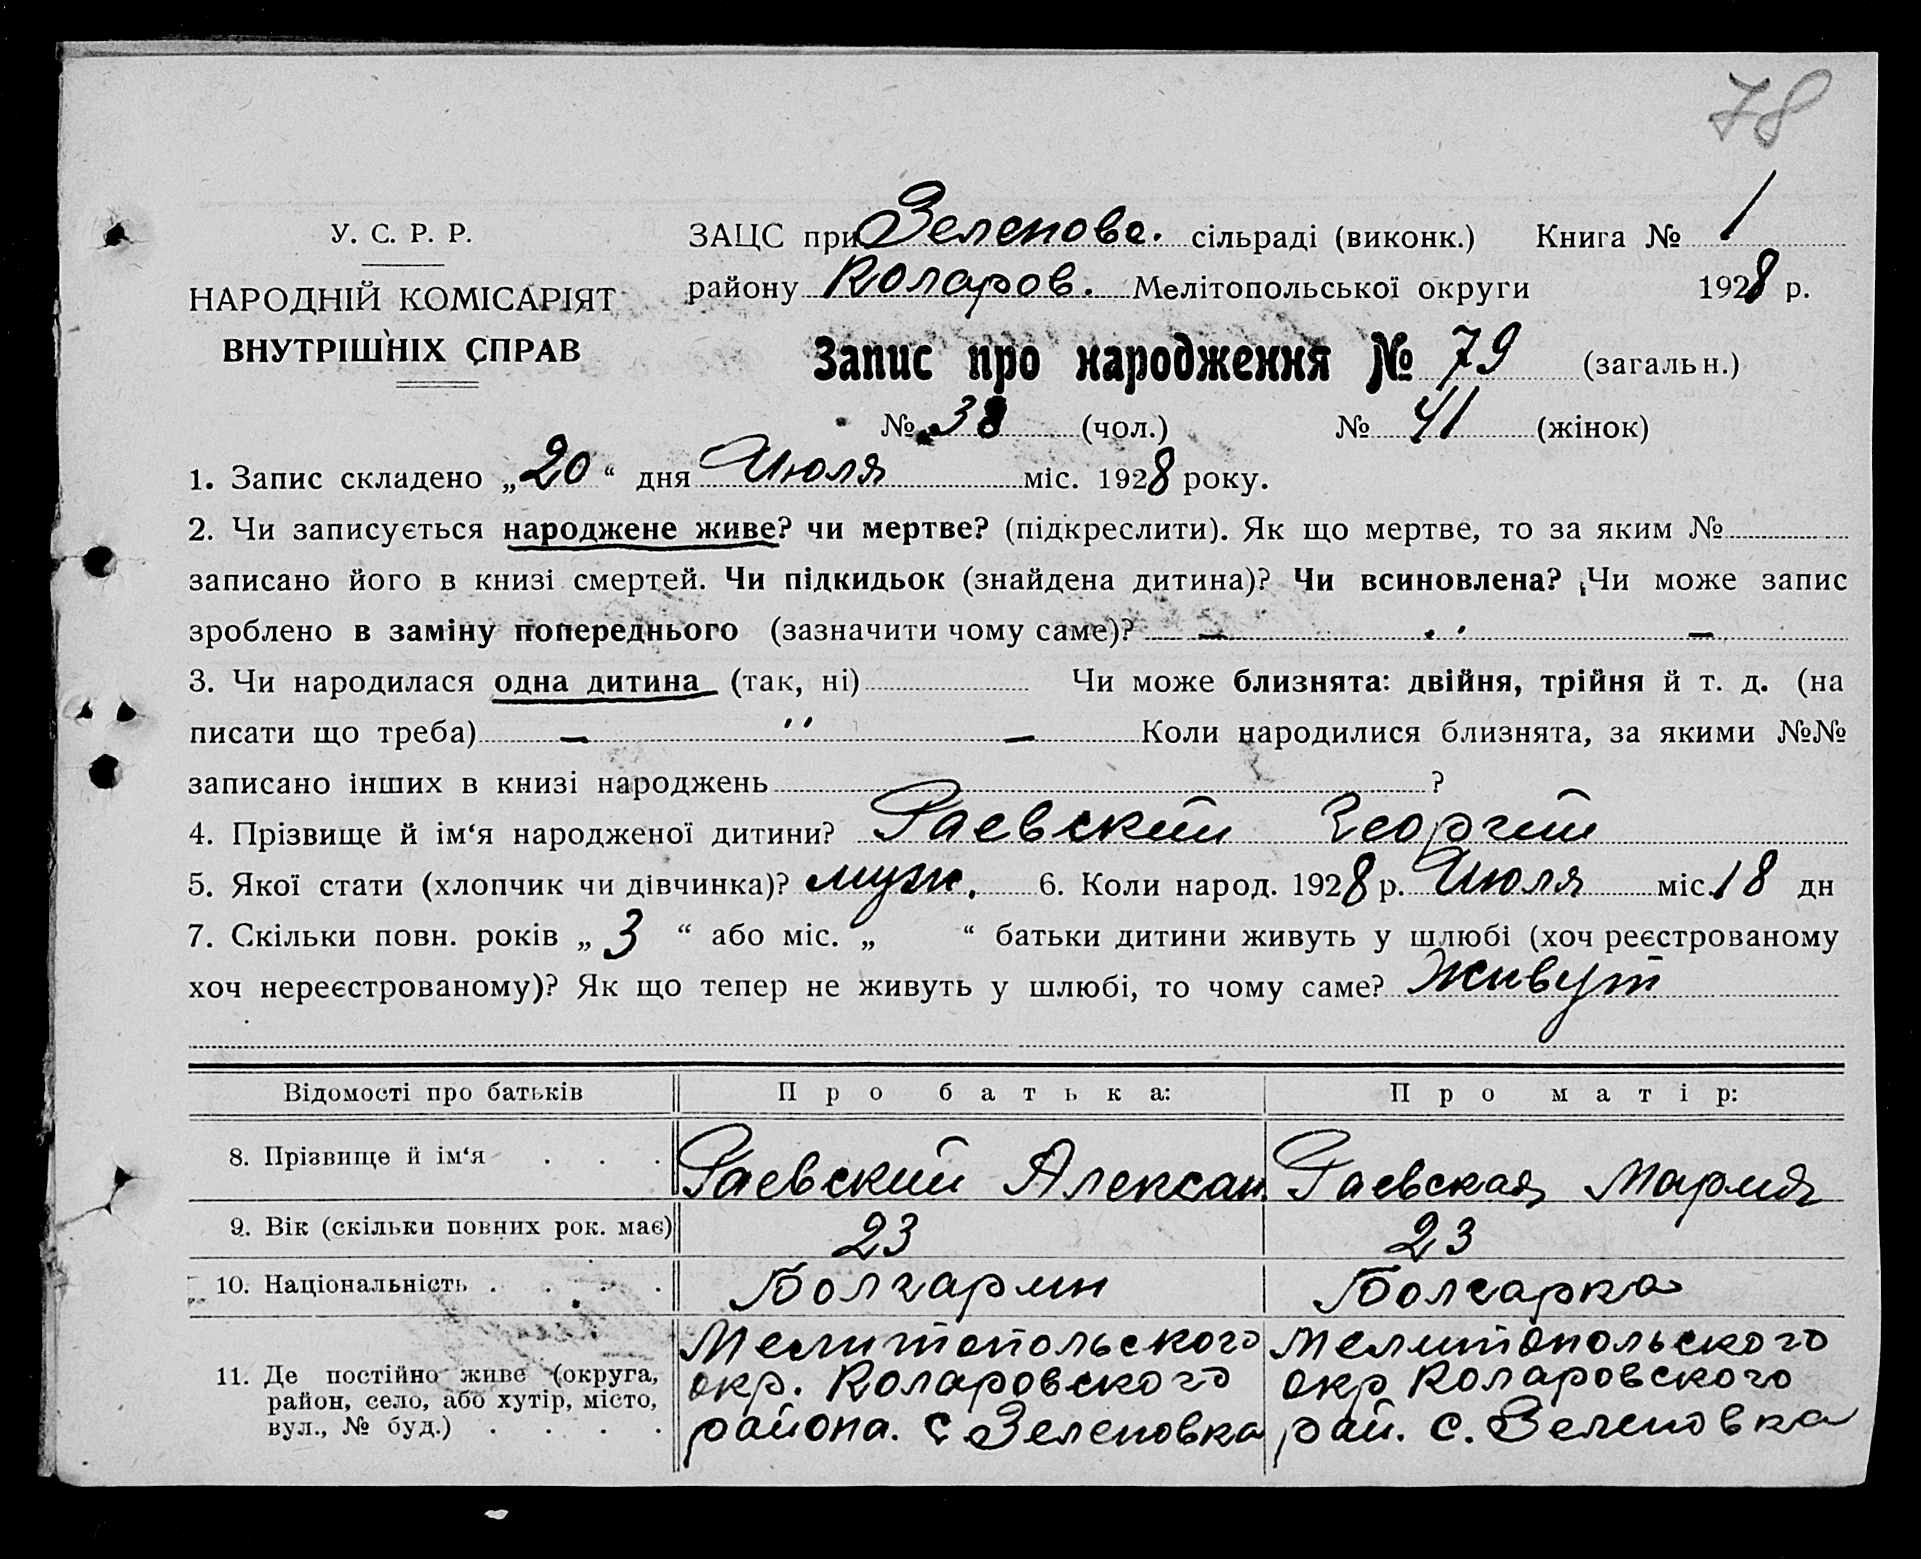 78
У. С. Р. Р.
НАРОДНІЙ КОМІСАРІЯТ
ВНУТРІШНІХ СПРАВ
ЗАЦС при Зеленовс. сільраді (виконк.) Книга № 1
району Коларов. Мелітопольської округи 1928 р.
Запис про народження № 79 (загальн.)
№ 38 (чол.) № 41 (жінок)
1. Запис складено „20“ дня Июля міс. 1928 року.
2. Чи записується народжене живе? чи мертве? (підкреслити). Як що мертве, то за яким №
записано його в книзі смертей. Чи підкидьок (знайдена дитина)? Чи всиновлена? Чи може запис
зроблено в заміну попереднього (зазначити чому саме)? — ״ —
3. Чи народилася одна дитина (так, ні) Чи може близнята: двійня, трійня й т. д. (на
писати що треба) — ״ — Коли народилися близнята, за якими №№
записано інших в книзі народжень ?
4. Прізвище й ім‘я народженої дитини? Раевский Георгий
5. Якої стати (хлопчик чи дівчинка)? муж. 6. Коли народ. 1928 р. Июля міс. 18 дн
7. Скільки повн. років „3“ або міс. „ “ батьки дитини живуть у шлюбі (хоч реєстрованому
хоч нереєстрованому)? Як що тепер не живуть у шлюбі, то чому саме? Живут
Відомості про батьків Про батька: Про матір:
8. Прізвище й ім‘я . . . Раевский Алексан. Раевская Мария
9. Вік (скільки повних рок. має) 23 23
10. Національність . . . . Болгарин Болгарка
11. Де постійно живе (округа, район, село, або хутір, місто, вул., № буд.) . . . .
Мелитопольского окр. Коларовского района. с Зеленовка
Мелитопольского окр Коларовского рай. с. Зеленовка